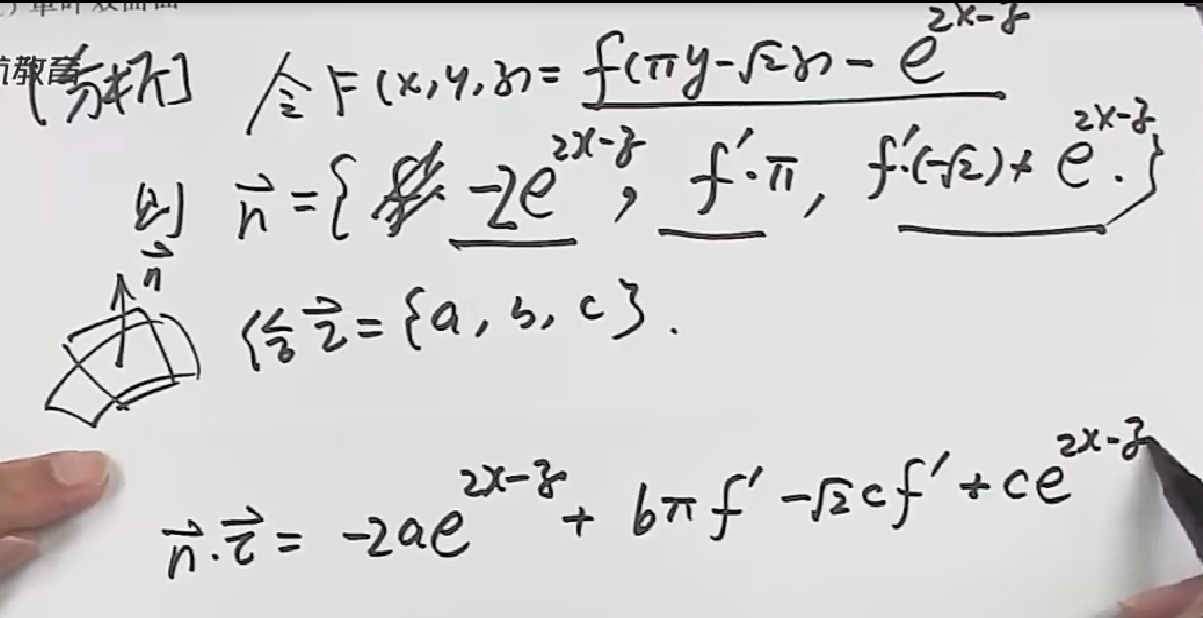 单叶双曲面
航教育
[分析] 令 F(x,y,z)= f(πy-√2z) - e^{2x-z}
则 n⃗={ -2e^{2x-z}, f'·π, f'·(-√2)+e^{2x-z}.}
n⃗
给 τ⃗={a, b, c}.
n⃗·τ⃗= -2ae^{2x-z} + bπf' -√2cf' + ce^{2x-z}